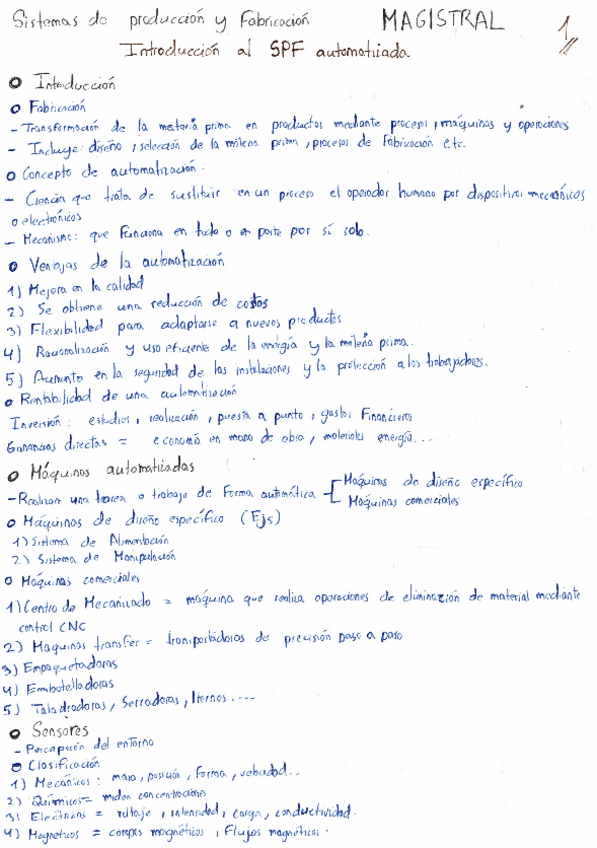 Sistemas de producción y Fabricación MAGISTRAL 1
Introducción al SPF automatizada
Introducción
Fabricación
- Transformación de la materia prima en productos mediante procesos, máquinas y operaciones
- Incluye: diseño, selección de la materia prima, procesos de Fabricación etc.
Concepto de automatización:
- Ciencia que trata de sustituir en un proceso el operador humano por dispositivos mecánicos
o electrónicos
- Mecanismo: que Funciona en todo o en parte por sí solo.
Ventajas de la automatización
1) Mejora en la calidad
2) Se obtiene una reducción de costos
3) Flexibilidad para adaptarse a nuevos productos
4) Racionalización y uso eficiente de la energía y la materia prima.
5) Aumento en la seguridad de las instalaciones y la protección a los trabajadores.
Rentabilidad de una automatización
Inversión: estudios, realización, puesta a punto, gastos Financieros
Ganancias directas = economía en mano de obra, materiales energía...
Máquinas automatizadas
- Realizan una tarea o trabajo de Forma automática
Máquinas de diseño específico
Máquinas comerciales
Máquinas de diseño específico (Ejs)
1) Sistema de Alimentación
2) Sistema de Manipulación
Máquinas comerciales
1) Centro de Mecanizado = máquina que realiza operaciones de eliminación de material mediante
control CNC
2) Maquinas transfer = transportadoras de precisión paso a paso
3) Empaquetadoras
4) Embotelladoras
5) Taladradoras, Serradoras, tornos....
Sensores
- Percepción del entorno
Clasificación
1) Mecánicos: masa, posición, Forma, velocidad...
2) Químicos = miden concentraciones
3) Eléctricos = voltaje, intensidad, carga, conductividad.
4) Magneticos = campos magnéticos, Flujos magnéticos.